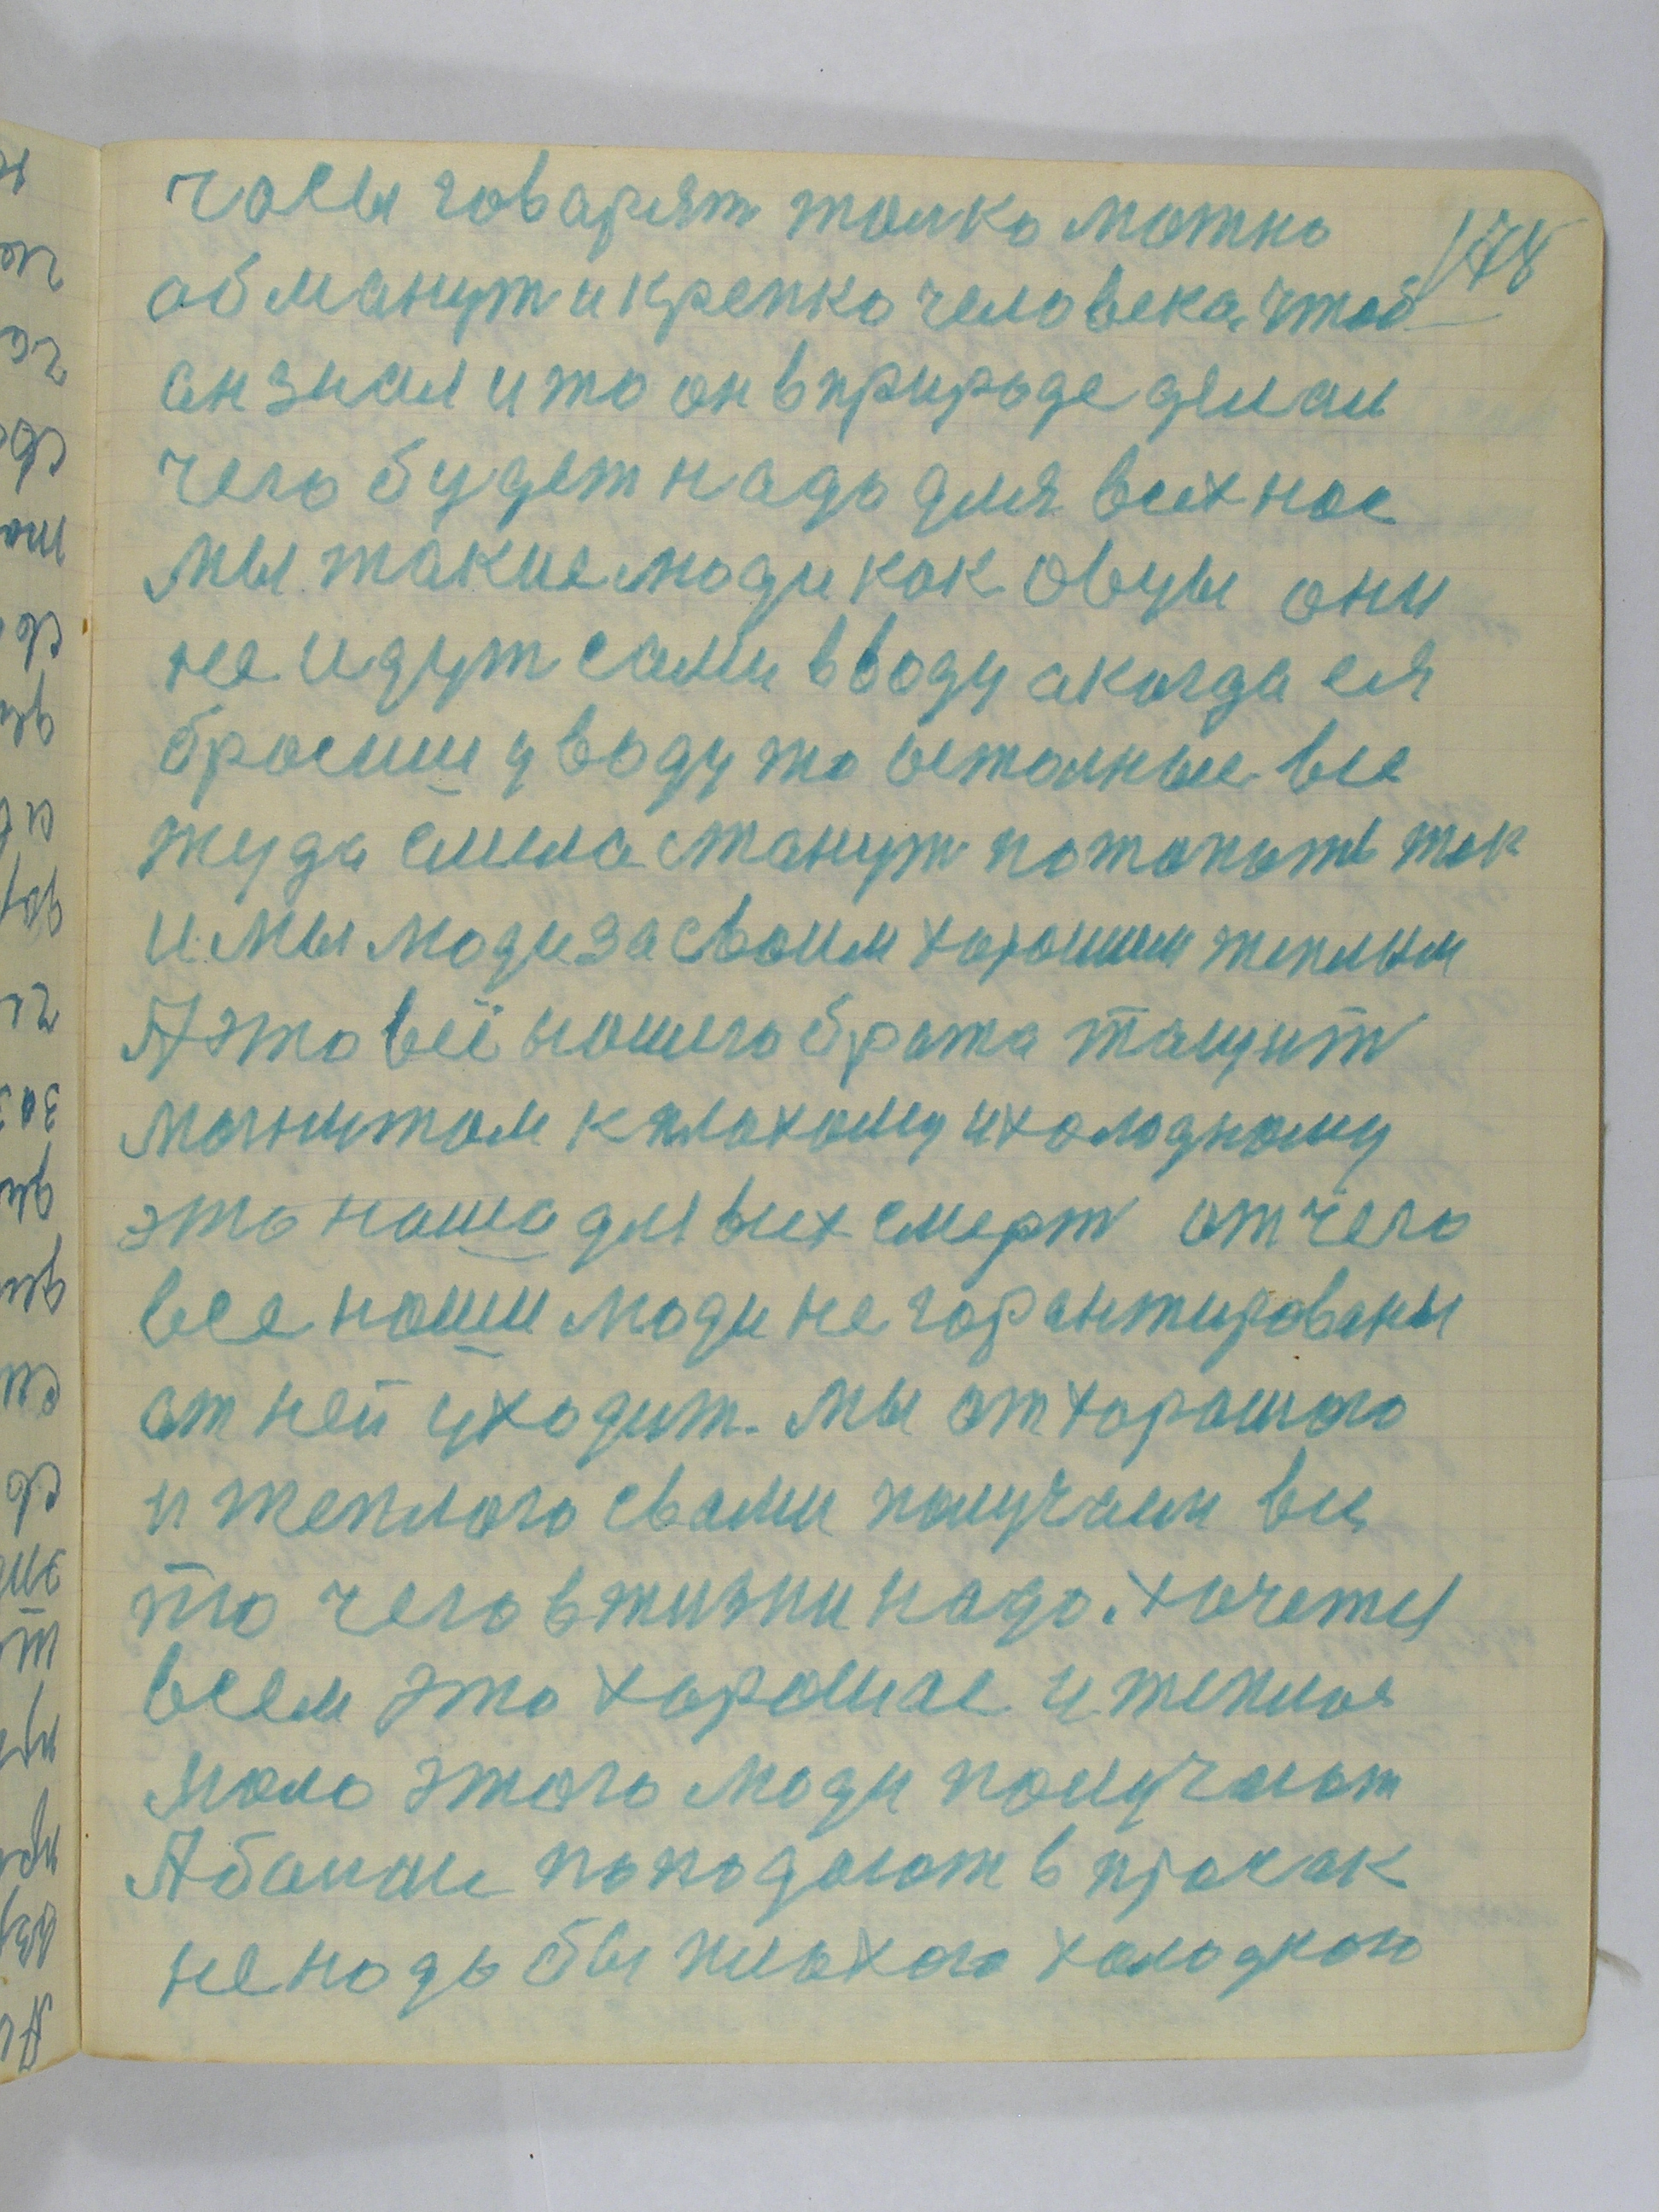 178
часы говарят толко можно
обманут и крепко человека, чтоб
ан знал что он в природе делаи
чего будет надо для всех нас
мы такие люди как овцы они
не идут сами в воду а когда ея
бросиш у воду то астолные все
туда смела станут потопать так
и мы люди за своим хорошим теплым
А это всё нашего брата тащит
магнитом к плохому и холодному
это наша для всех смерт от чего
все наши люди не гарантированы
от ней уходит. мы от хорошого
и теплого с вами получаем всё
то чего в жизни надо. хочется
всем это хорошае и теплоя
мало этого люди получают
А болше попадают в просак
не надо бы плохого холодного